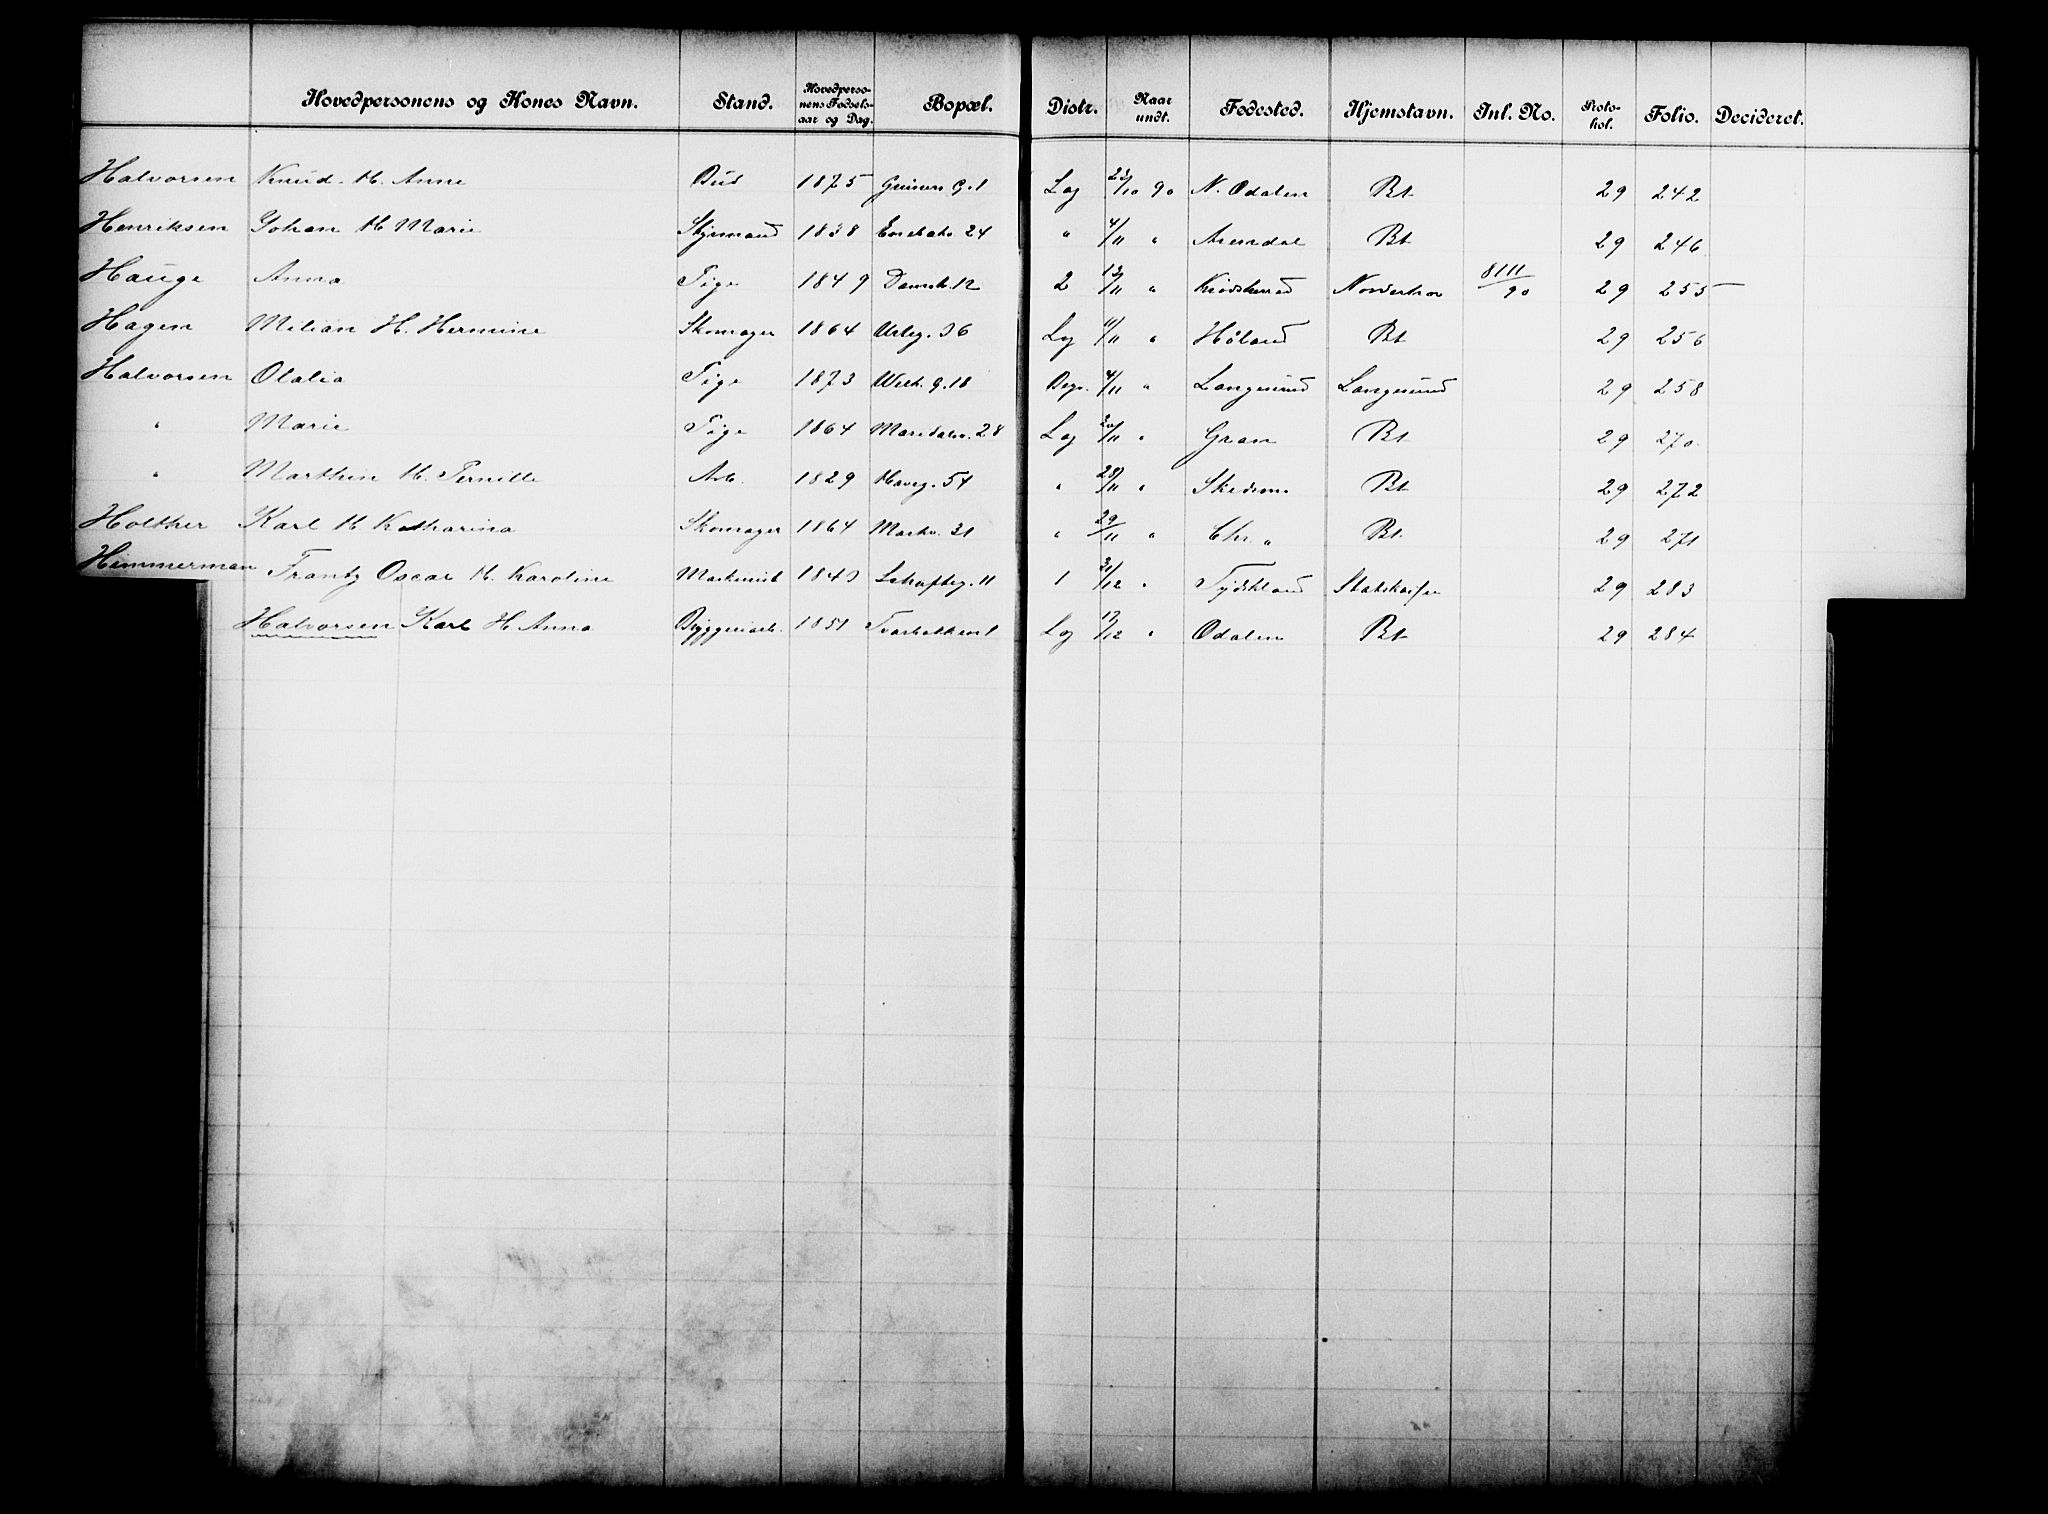 Hovedpersonens og Kones Navn. Stand. Hovedpersonens Fødselsaar og Dag. Bopæl. Distr. Naar undt. Fødested. Hjemstavn. Inl. No. Protokol. Folio. Decideret.
Halvorsen Knud H. Anne Bud 1875 Gruners g. 1 Lag 23/10 90 N. Odalen Bt 29 242
Henriksen Johan H Marie Styrmand 1838 Enebakv. 24 " 4/11 " Arendal Bt 29 246
Hauge Anna Pige 1849 Damstr. 12 2 13/11 " Krødsherred Norderhov 8111/90 29 255
Hagen Milian H. Hermine Skomager 1864 Urteg. 36 Lag 11/11 " Høland Bt 29 256
Halvorsen Olalia Pige 1873 Welh. g. 18 Begr. 4/11 " Langesund Langesund 29 258
" Marie Pige 1864 Maridalsv. 28 Lag 20/11 " Gran Bt 29 270
" Marthin H. Pernille Arb. 1829 Haveg. 54 " 28/11 " Skedsmo Bt 29 272
Holther Karl H Katharina Skomager 1864 Markv. 31 " 29/11 " Chr. " Bt. 29 271
Himmerman Frantz Oscar H. Karoline Maskinist 1840 Schafteg. 11 1 /12 " Tydskland 29 283
Halvorsen Karl H. Anna Bryggeriarb. 1851 1 Lag 17/12 " Odalen Bt 29 284